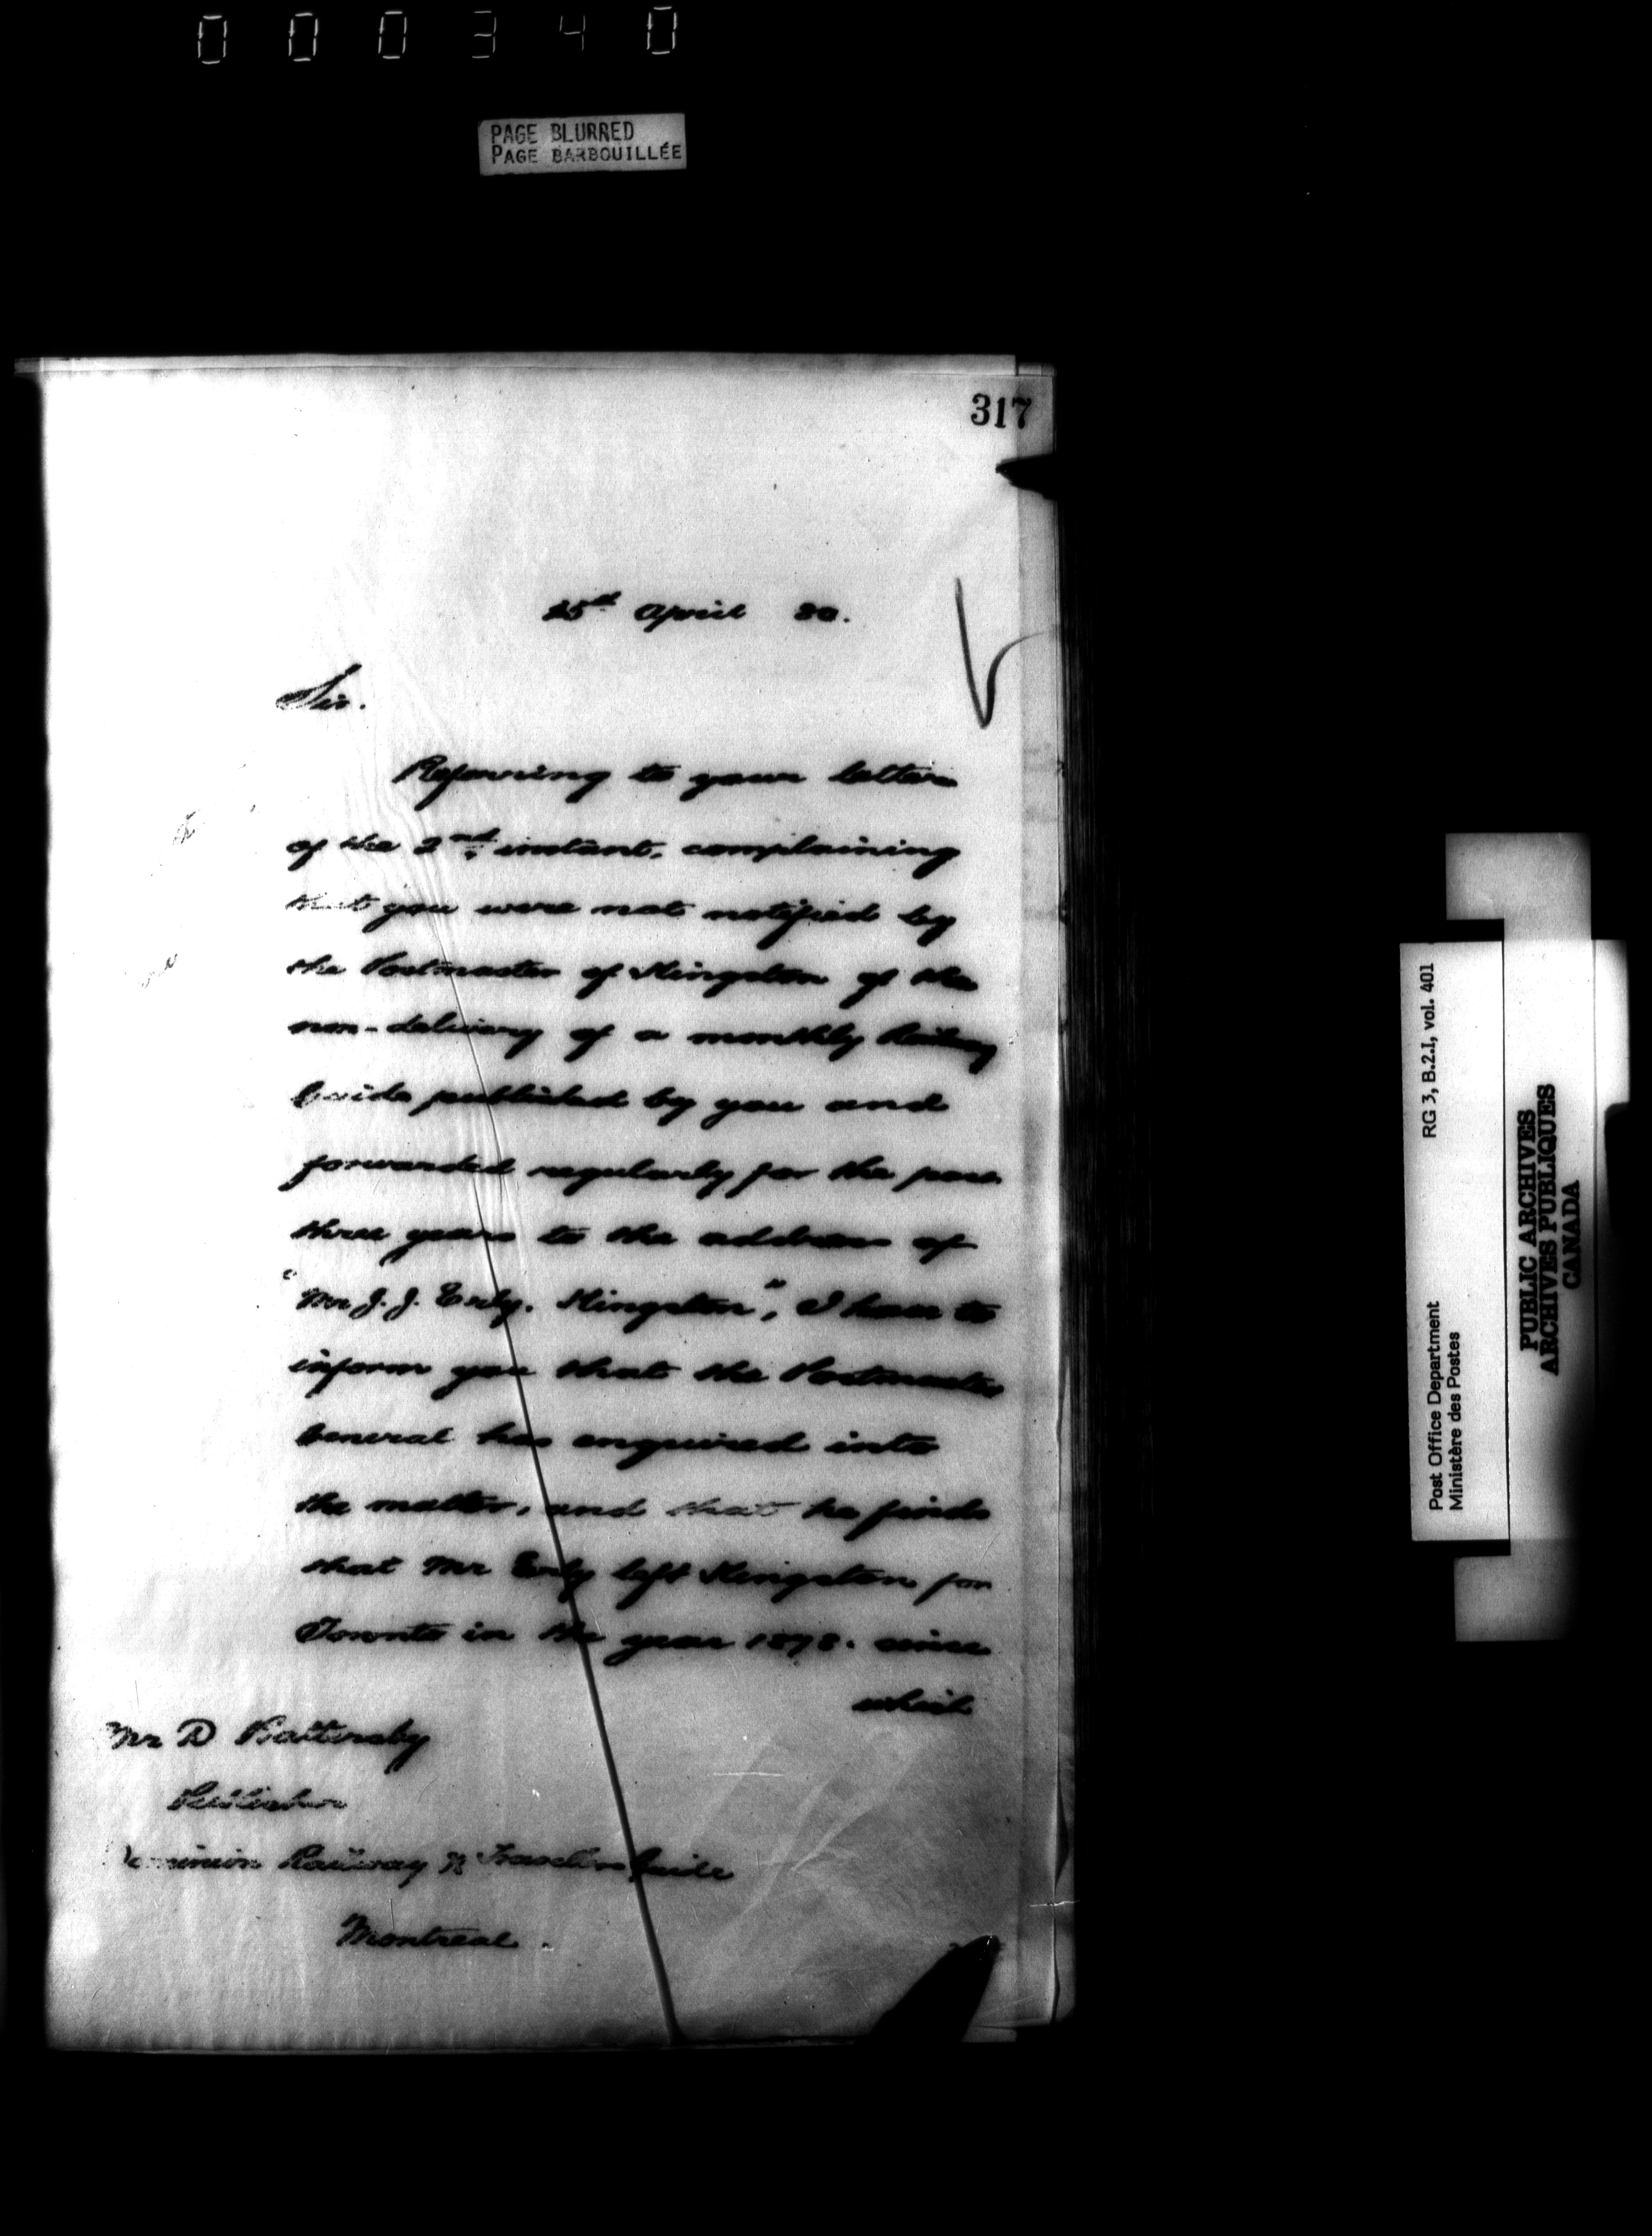 000340
PAGE BLURRED
PAGE BARBOUILLÉE
317
25th April 80.
Sir.
Referring to your letter
of the 2nd instant, complaining
that you were not notified by
the Postmaster of Kingston of the
non-delivery of a monthly Railway
Guide published by you and
forwarded regularly for the past
three years to the address of
"Mr J. J. Erly. Kingston", I have to
inform you that the Postmaster
General has enquired into
the matter, and that he finds
that Mr Erly left Kingston for
Toronto in the year 1878. since
which
Mr D Battersby
Publisher
Dominion Railway & Travellers Guide
Montreal.
Post Office Department
Ministère des Postes
RG 3, B.2.I, vol. 401
PUBLIC ARCHIVES
ARCHIVES PUBLIQUES
CANADA